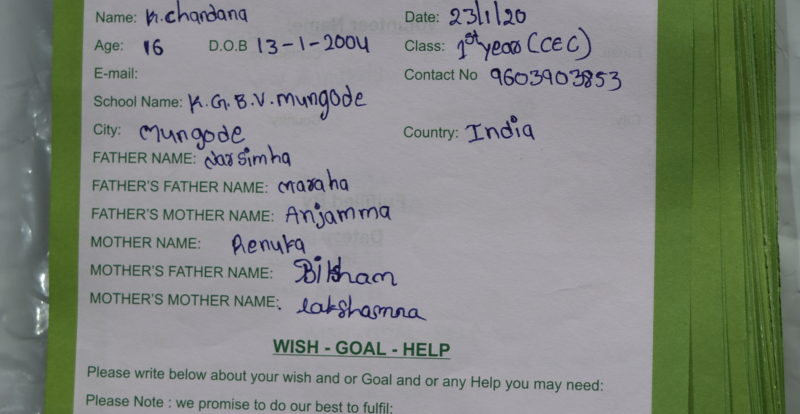 Name: K.chandana Date: 23/1/20
Age: 16 D.O.B 13-1-2004 Class: 1st year (CEC)
E-mail: Contact No 9603903853
School Name: K.G.B.V. mungode
City: Mungode Country: India
FATHER NAME: Narsimha
FATHER'S FATHER NAME: maraha
FATHER'S MOTHER NAME: Anjamma
MOTHER NAME: Renuka
MOTHER'S FATHER NAME: Biksham
MOTHER'S MOTHER NAME: lakshamma
WISH - GOAL - HELP
Please write below about your wish and or Goal and or any Help you may need:
Please Note : we promise to do our best to fulfil: